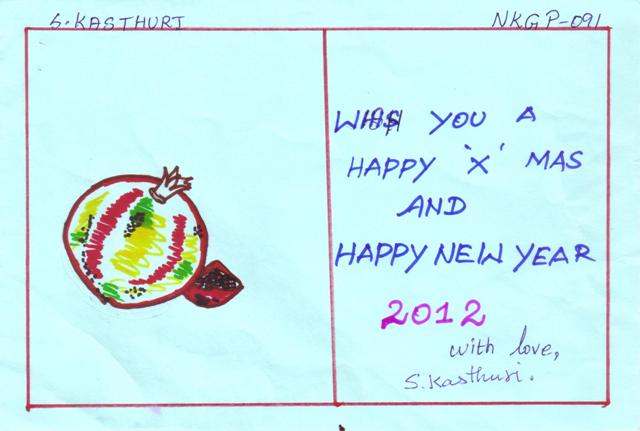 S. KASTHURI NKGP-091
WISH YOU A
HAPPY 'X' MAS
AND
HAPPY NEW YEAR
2012
with love,
S. Kasthuri.